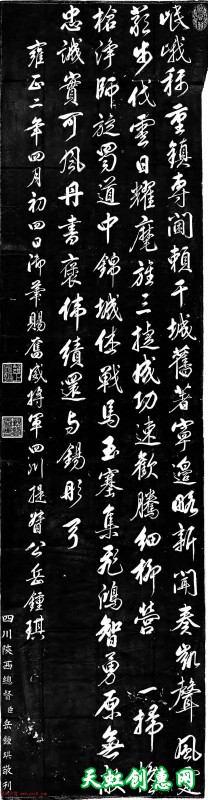 岷峨稱重鎮專閫賴干城舊著寧邊略新聞奏凱聲風霆
嚴步伐雲日耀麾旌三捷成功速歡騰細柳營 一掃攙
槍淨師旋蜀道中錦城休戰馬玉塞集飛鴻智勇原無敵
忠誠實可風丹書褒偉績還与錫彤弓
雍正二年四月初四日御筆賜奮威將軍四川提督公岳鍾琪
四川陝西總督臣岳鍾琪敬刊
天虹创意网